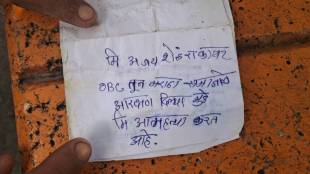 मि अजय शेकुराव कावर
OBC तून मराठा समाजाचे
आरक्षण दिल्या मुळे
मि आत्महत्या करत
आहे.